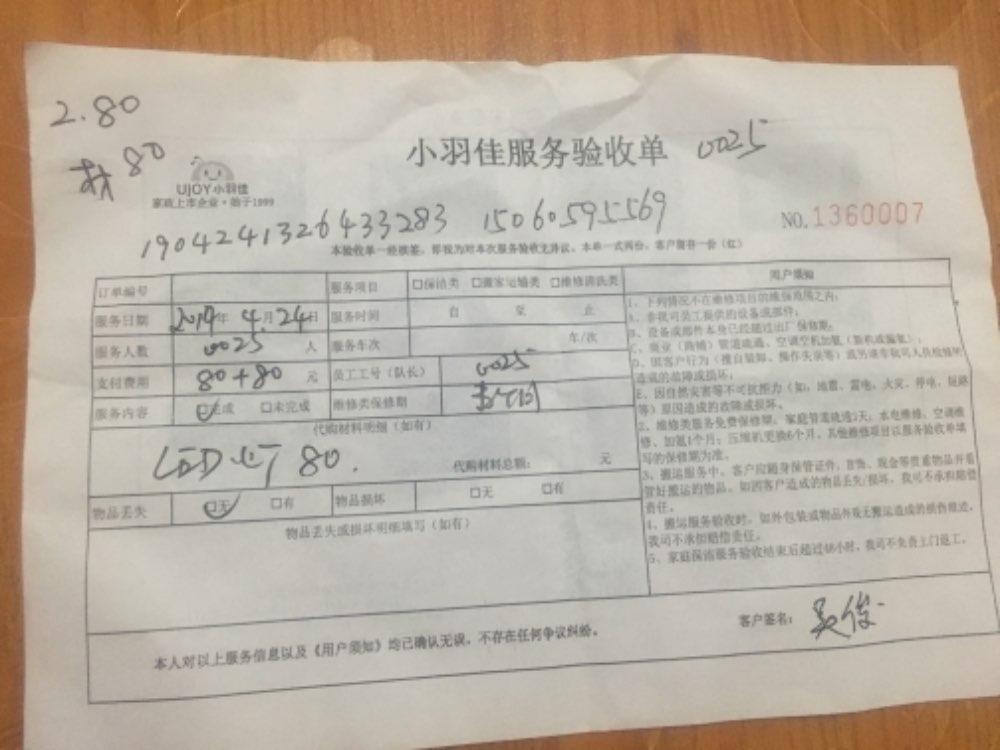 2.80
80
小羽佳服务验收单 0025
UJOY小羽佳
家政上市企业·始于1999
19042413264332283 15060595569
NO.1360007
本验收单一经核签,即视为对本次服务验收无异议。本单一式两份,客户留存一份(红)
订单编号 服务项目 □保洁类 □搬家运输类 □维修清洗类
服务日期 2019年4月24日 服务时间 自 至 止
服务人数 0025 人 服务车次 车/次
支付费用 80+80 元 员工工号(队长) 0025
服务内容 □完成 □未完成 维修类保修期
代购材料明细(如有)
LED灯 80. 代购材料总额: 元
物品丢失 □无 □有 物品损坏 □无 □有
物品丢失或损坏明细填写(如有)
用户须知
1、下列情况不在维修项目的维保范围之内:
A、非我司员工提供的设备或部件;
B、设备或部件本身已经超过出厂保修期;
C、商业(商铺)管道疏通、空调空机加氨(新机或漏氨);
D、因客户行为(擅自装卸、操作失误等)或另请非我司人员检修所
造成的故障或损坏;
E、因自然灾害等不可抗拒力(如:地震、雷电、火灾、停电、短路
等)原因造成的故障或损坏。
2、维修类服务免费保修期:家庭管道疏通3天;水电维修、空调维
修、加氨1个月;压缩机更换6个月,其他维修项目以服务验收单填
写的保修期为准。
3、搬运服务中,客户应随身保管证件、首饰、现金等贵重物品并看
管好搬运的物品。如因客户造成的物品丢失/损坏,我司不承担赔偿
责任。
4、搬运服务验收时,如外包装或物品外观无搬运造成的损伤痕迹,
我司不承担赔偿责任。
5、家庭保洁服务验收结束后超过48小时,我司不负责上门返工。
客户签名: 吴俊
本人对以上服务信息以及《用户须知》均已确认无误,不存在任何争议纠纷。